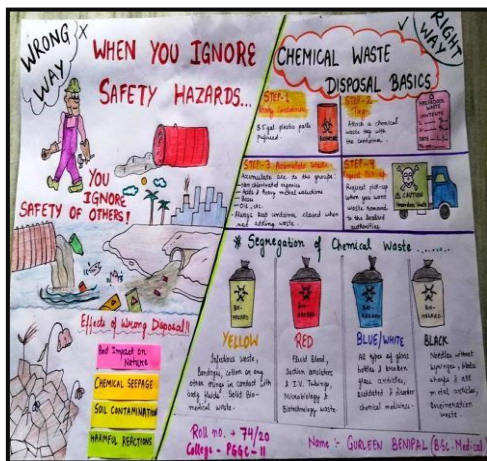 WRONG WAY X
WHEN YOU IGNORE
SAFETY HAZARDS...
YOU IGNORE
SAFETY OF OTHERS!
Effects of Wrong Disposal!!
Bad Impact on
Nature
CHEMICAL SEEPAGE
SOIL CONTAMINATION
HARMFUL REACTIONS
RIGHT WAY
CHEMICAL WASTE
DISPOSAL BASICS
STEP-1
Container
5 gal. plastic pails
preferred.
STEP-2
Tag
Attach a chemical
waste tag with
the container.
HAZARDOUS
WASTE
CONTENTS
STEP-3 Accumulate Waste
Accumulate acc to the groups:
- Non chlorinated organics
- Acids & Heavy metal solutions
- Bases
- Oil, etc.
- Always keep container closed when
not adding waste.
STEP-4
Pick-up
Request pick-up
when you want
waste removed
to the
authorities.
CAUTION
Hazardous Waste
* Segregation of Chemical Waste ......
BIO-HAZARD
BIO-HAZARD
BIO-HAZARD
BIO-HAZARD
YELLOW
Infectious waste,
Bandages, cotton or any
other things in contact with
body fluids. Solid Bio-
medical waste.
RED
Fluid Blood,
Suction canisters
& I.V. Tubings,
Microbiology &
Biotechnology waste
BLUE/WHITE
All types of glass
bottles & broken
glass articles,
outdated & discarded
chemical medicines.
BLACK
Needles without
syringes, blades
sharps & all
metal articles,
incineration
waste.
Roll no. → 74/20
College - PGGC-11
Name :- GURLEEN BENIPAL (BSc. Medical)